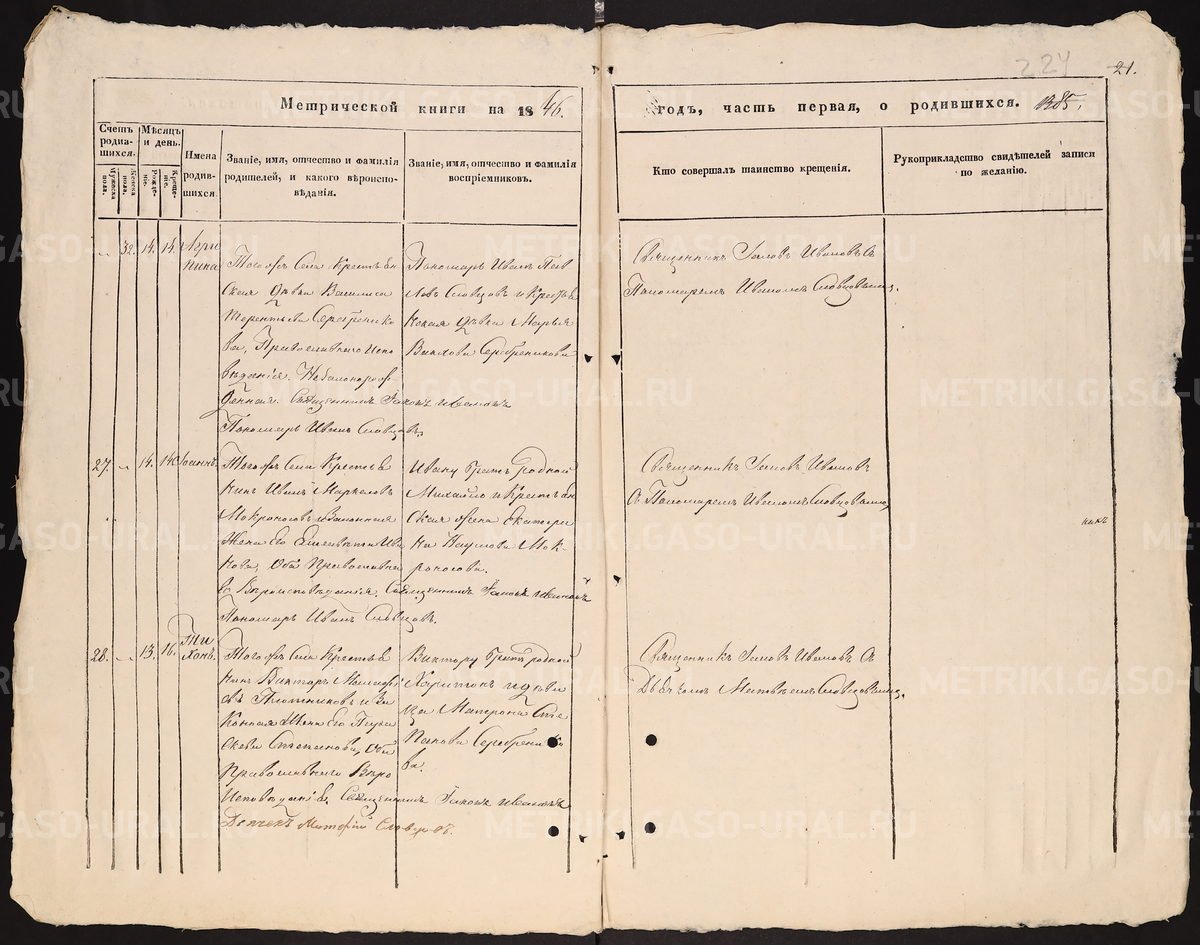 224
21.
Метрической книги на 1846.
годъ, часть первая, о родившихся. 1385.
Счетъ родившихся.
Мужеска пола.
Женска пола.
Мѣсяцъ и день.
Рожденіе.
Крещеніе.
Имена родившихся.
Званіе, имя, отчество и фамилія
родителей, и какого вѣроиспо-
вѣданія.
Званіе, имя, отчество и фамилія
воспріемниковъ.
Кто совершалъ таинство крещенія.
Рукоприкладство свидѣтелей записи
по желанію.
32. 14. 14. Агри
пина
Тогожъ Села Крестьян
ская Дѣвка Василиса
Терентьева Серебренико
ва, Православнаго Испо
вѣданія. Незаконнорож
денная. Священникъ Іаковъ Ивановъ
Пономарь Иванъ Словцовъ.
Пономарь Иванъ Пав
ловъ Словцовъ и Крестья
нская Дѣвка Марья
Серебреникова
Священникъ Іаковъ Ивановъ Съ
Пономаремъ Иваномъ Словцовымъ.
27. 14. 14. Іоаннъ.
Тогожъ Села Крестья
нинъ Иванъ Маркеловъ
Мокроносовъ и Законная
Жена Его Ива
нова, Оба Православна
го Вѣроисповѣданія. Священникъ Іаковъ Ивановъ
Пономарь Иванъ Словцовъ.
Ивану братъ родной
Михайло и Крестьян
ская жена Екатери
на Наумова Мок-
роносова.
Священникъ Іаковъ Ивановъ
Съ Пономаремъ Иваномъ Словцовымъ,
28. 13. 16. Ти
хонъ.
Тогожъ Села Крестья
нинъ Викторъ
Плотниковъ и За
конная Жена Его Парас
кева Степанова, Оба
Православнаго Вѣро
Исповѣданія. Священникъ Іаковъ Ивановъ
Дьячекъ Матфій Словцовъ.
Виктору братъ родной
Харитонъ и дѣви
ца Матрона Сте
панова Серебренико
ва.
Священникъ Іаковъ Ивановъ Съ
Дьячкомъ Матвѣемъ Словцовымъ.
METRIKI.GASO-URAL.RU